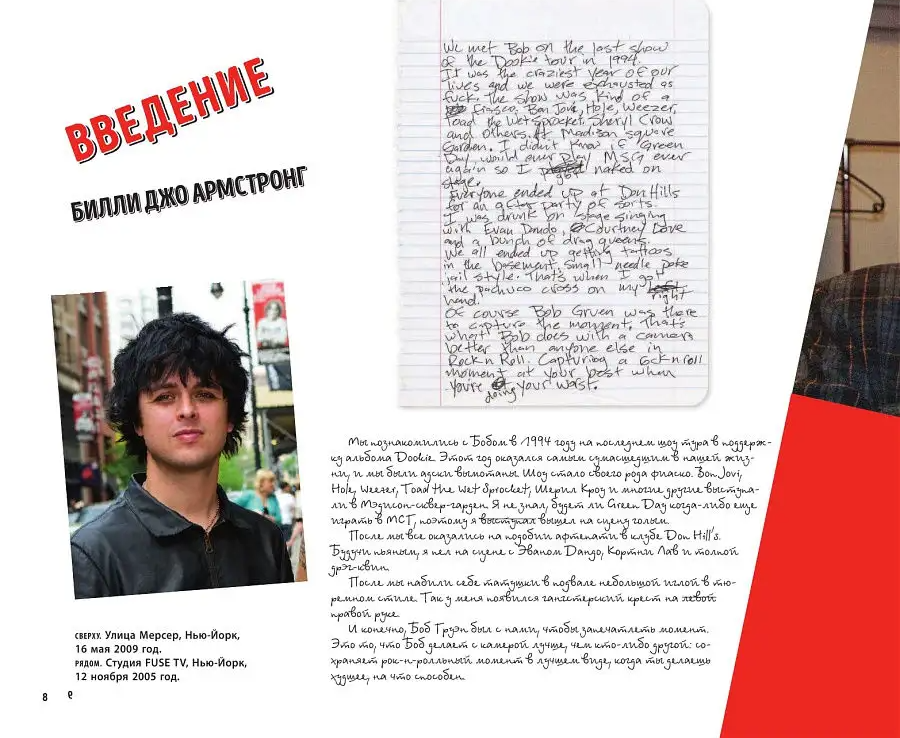 ВВЕДЕНИЕ
БИЛЛИ ДЖО АРМСТРОНГ
We met Bob on the last show
of the Dookie tour in 1994.
It was the craziest year of our
lives and we were exhausted as
fuck. The show was kind of a
fiasco. Bon Jovi, Hole, Weezer,
Toad the Wet Sprocket, Sheryl Crow
and others. At Madison square
Garden. I didn't know if Green
Day would ever play MSG ever
again so I got naked on
stage.
Everyone ended up at Don Hills
for an after party of sorts.
I was drunk on stage singing
with Evan Dando, Courtney Love
and a bunch of drag queens.
We all ended up getting tattoos
in the basement small needle poke
jail style. That's when I got
the pachuco cross on my left right
hand.
Of course Bob Gruen was there
to capture the moment. That's
what Bob does with a camera
better than anyone else in
Rock n Roll. Capturing a rock n roll
moment at your best when
you're doing your worst.
Мы познакомились с Бобом в 1994 году на последнем шоу тура в поддерж-
ку альбома Dookie. Этот год оказался самым сумасшедшим в нашей жиз-
ни, и мы были адски вымотаны. Шоу стало своего рода фиаско. Bon Jovi,
Hole, Weezer, Toad the Wet Sprocket, Шерил Кроу и многие другие выступа-
ли в Мэдисон-сквер-гарден. Я не знал, будет ли Green Day когда-либо еще
играть в МСГ, поэтому я выступал вышел на сцену голым.
После мы все оказались на подобии афтепати в клубе Don Hill's.
Будучи пьяным, я пел на сцене с Эваном Дандо, Кортни Лав и толпой
дрэг-квин.
После мы набили себе татушки в подвале небольшой иглой в тю-
ремном стиле. Так у меня появился гангстерский крест на левой
правой руке.
И конечно, Боб Груэн был с нами, чтобы запечатлеть момент.
Это то, что Боб делает с камерой лучше, чем кто-либо другой: со-
храняет рок-н-ролльный момент в лучшем виде, когда ты делаешь
худшее, на что способен.
СВЕРХУ. Улица Мерсер, Нью-Йорк,
16 мая 2009 год.
РЯДОМ. Студия FUSE TV, Нью-Йорк,
12 ноября 2005 год.
8